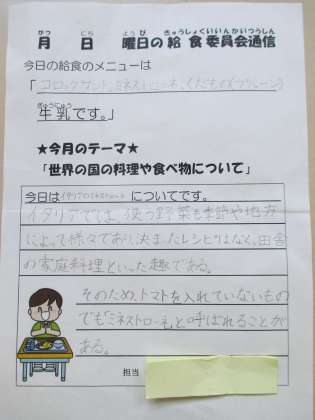 がつ にち ようび きゅうしょくいいんかいつうしん
月 日 曜日の給食委員会通信
今日の給食のメニューは
「コロッケサンド、ミネストローネ、くだもの(プルーン)
ぎゅうにゅう
牛乳です。」
★今月のテーマ★
「世界の国の料理や食べ物について」
今日はイタリアのミネストローネについてです。
イタリアでは、使う野菜も季節や地方
によって様々であり、決まったレシピはなく、田舎
の家庭料理といった趣である。
そのため、トマトを入れていないもの
でも「ミネストローネ」と呼ばれることが
ある。
担当